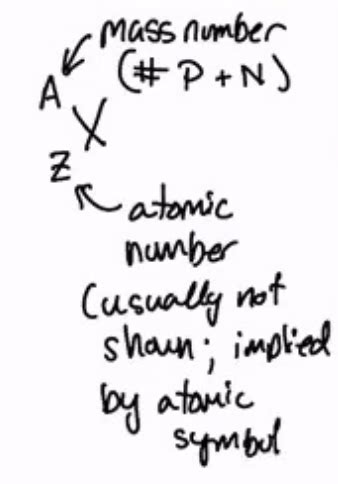 mass number
(# P + N)
A
X
Z
atomic
number
(usually not
shown; implied
by atomic
symbol